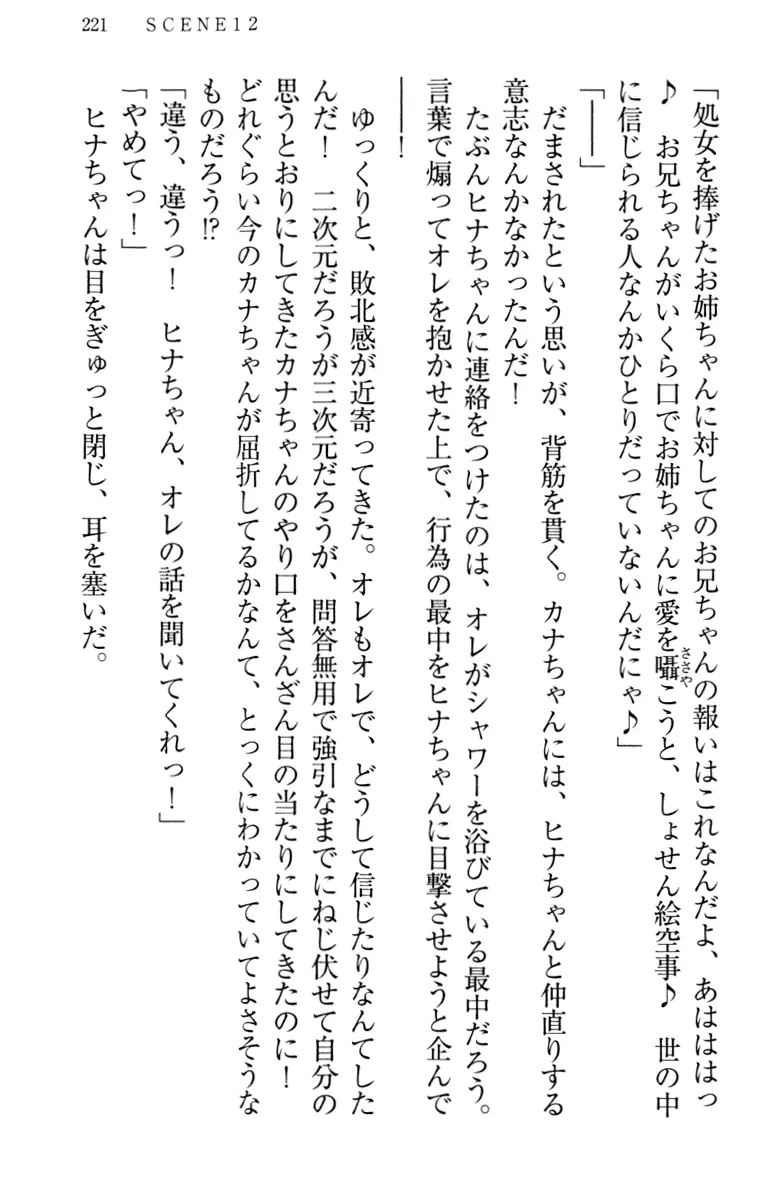 221 SCENE12
「処女を捧げたお姉ちゃんに対してのお兄ちゃんの報いはこれなんだよ、あはははっ
♪　お兄ちゃんがいくら口でお姉ちゃんに愛を囁こうと、しょせん絵空事♪　世の中
に信じられる人なんかひとりだっていないんだにゃ♪」
「――」
　だまされたという思いが、背筋を貫く。カナちゃんには、ヒナちゃんと仲直りする
意志なんかなかったんだ！
　たぶんヒナちゃんに連絡をつけたのは、オレがシャワーを浴びている最中だろう。
言葉で煽ってオレを抱かせた上で、行為の最中をヒナちゃんに目撃させようと企んで
――！
　ゆっくりと、敗北感が近寄ってきた。オレもオレで、どうして信じたりなんてした
んだ！　二次元だろうが三次元だろうが、問答無用で強引なまでにねじ伏せて自分の
思うとおりにしてきたカナちゃんのやり口をさんざん目の当たりにしてきたのに！
どれぐらい今のカナちゃんが屈折してるかなんて、とっくにわかっていてよさそうな
ものだろう!?
「違う、違うっ！　ヒナちゃん、オレの話を聞いてくれっ！」
「やめてっ！」
　ヒナちゃんは目をぎゅっと閉じ、耳を塞いだ。